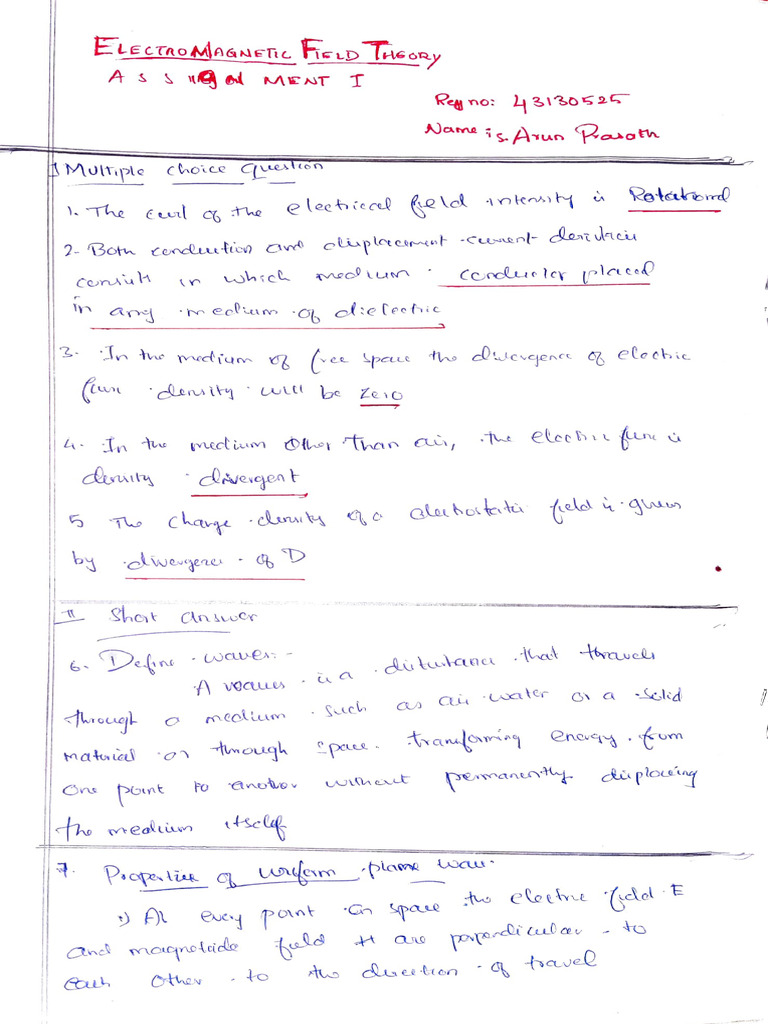 ELECTROMAGNETIC FIELD THEORY
ASSIGNMENT I
Reg no: 43130525
Name is. Arun Prasath
I Multiple choice Question
1. The curl of the electrical field intensity is Rotational
2. Both conduction and displacement current density
consist in which medium. conductor placed
in any medium of dielectric
3. In the medium of free space the divergence of electric
flux density will be Zero
4. In the medium other than air, the electric flux is
density divergent
5 The charge density of a electrostatic field is given
by divergence of D
II Short answer
6. Define waves:-
A waves is a disturbance that travels
through a medium such as air water or a solid
material or through space. transforming energy from
one point to another without permanently displacing
the medium itself
7. Properties of uniform plane wave.
i) At every point in space the electric field E
and magnetic field H are perpendicular to
each other to the direction of travel